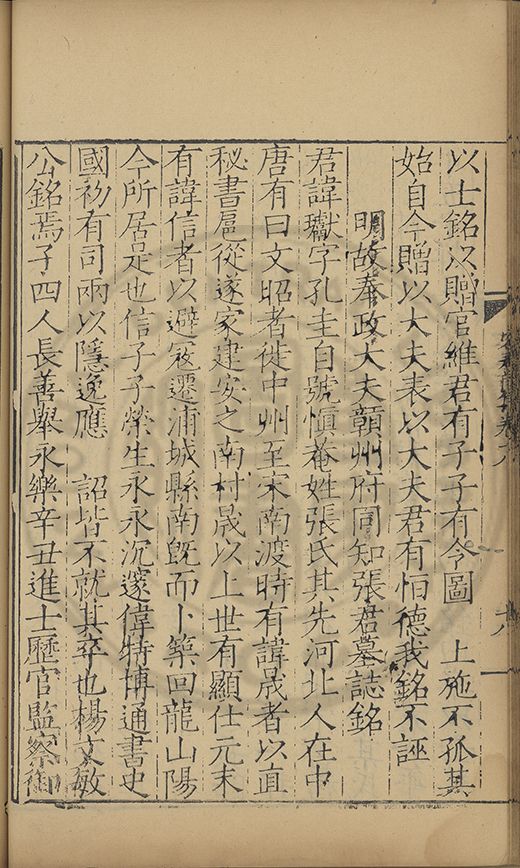 以士銘以贈官維君有子子有令圖　上施不孤其
始自今贈以大夫表以大夫君有恒德我銘不誣
明故奉政大夫贛州府同知張君墓誌銘
君諱瓛字孔圭自號愼菴姓張氏其先河北人在中
唐有曰文昭者徙中州至宋南渡時有諱晟者以直
秘書扈從遂家建安之南村晟以上世有顯仕元末
有諱信者以避寇遷浦城縣南旣而卜築回龍山陽
今所居是也信子子榮生永永沉邃偉特博通書史
國初有司兩以隱逸應　詔皆不就其卒也楊文敏
公銘焉子四人長善舉永樂辛丑進士歷官監察御